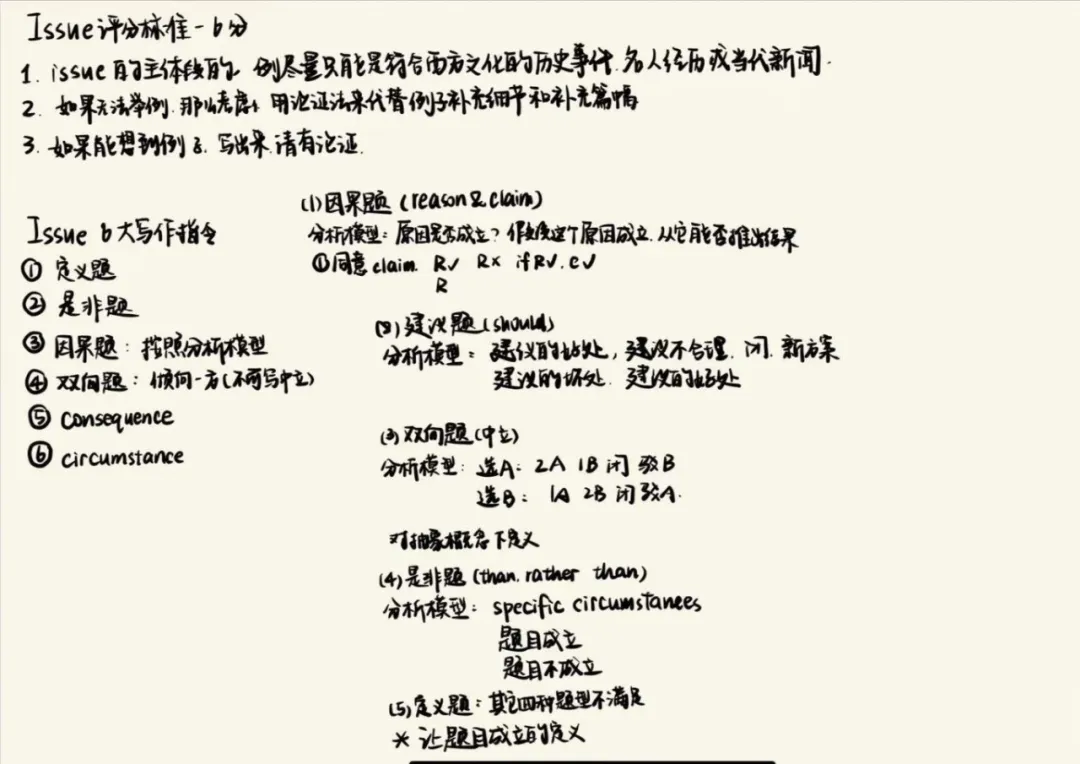 Issue评分标准-6分
1. issue的主体段的, 例尽量只能是符合西方文化的历史事件.名人经历或当代新闻.
2. 如果无法举例.那么考虑, 用论证法来代替例子补充细节和补充篇幅
3. 如果能想到例子. 写出来.请有论证.
Issue 6大写作指令
① 定义题
② 是非题
③ 因果题：按照分析模型
④ 双向题：倾向一方(不可写中立)
⑤ consequence
⑥ circumstance
(1)因果题(reason&claim)
分析模型：原因是否成立? 假使这个原因成立.从它能否推出结果
①同意claim. R√ R× if R√. C√
R
(2)建议题(should)
分析模型：建议的好处, 建议不合理. 闭. 新方案
建议的坏处. 建议的好处
(3)双向题(中立)
分析模型：选A：2A 1B 闭 驳B
选B：1A 2B 闭 驳A.
对抽象概念下定义
(4)是非题(than. rather than)
分析模型：specific circumstances
题目成立
题目不成立
(5)定义题：其它四种题型不满足
* 让题目成立的定义